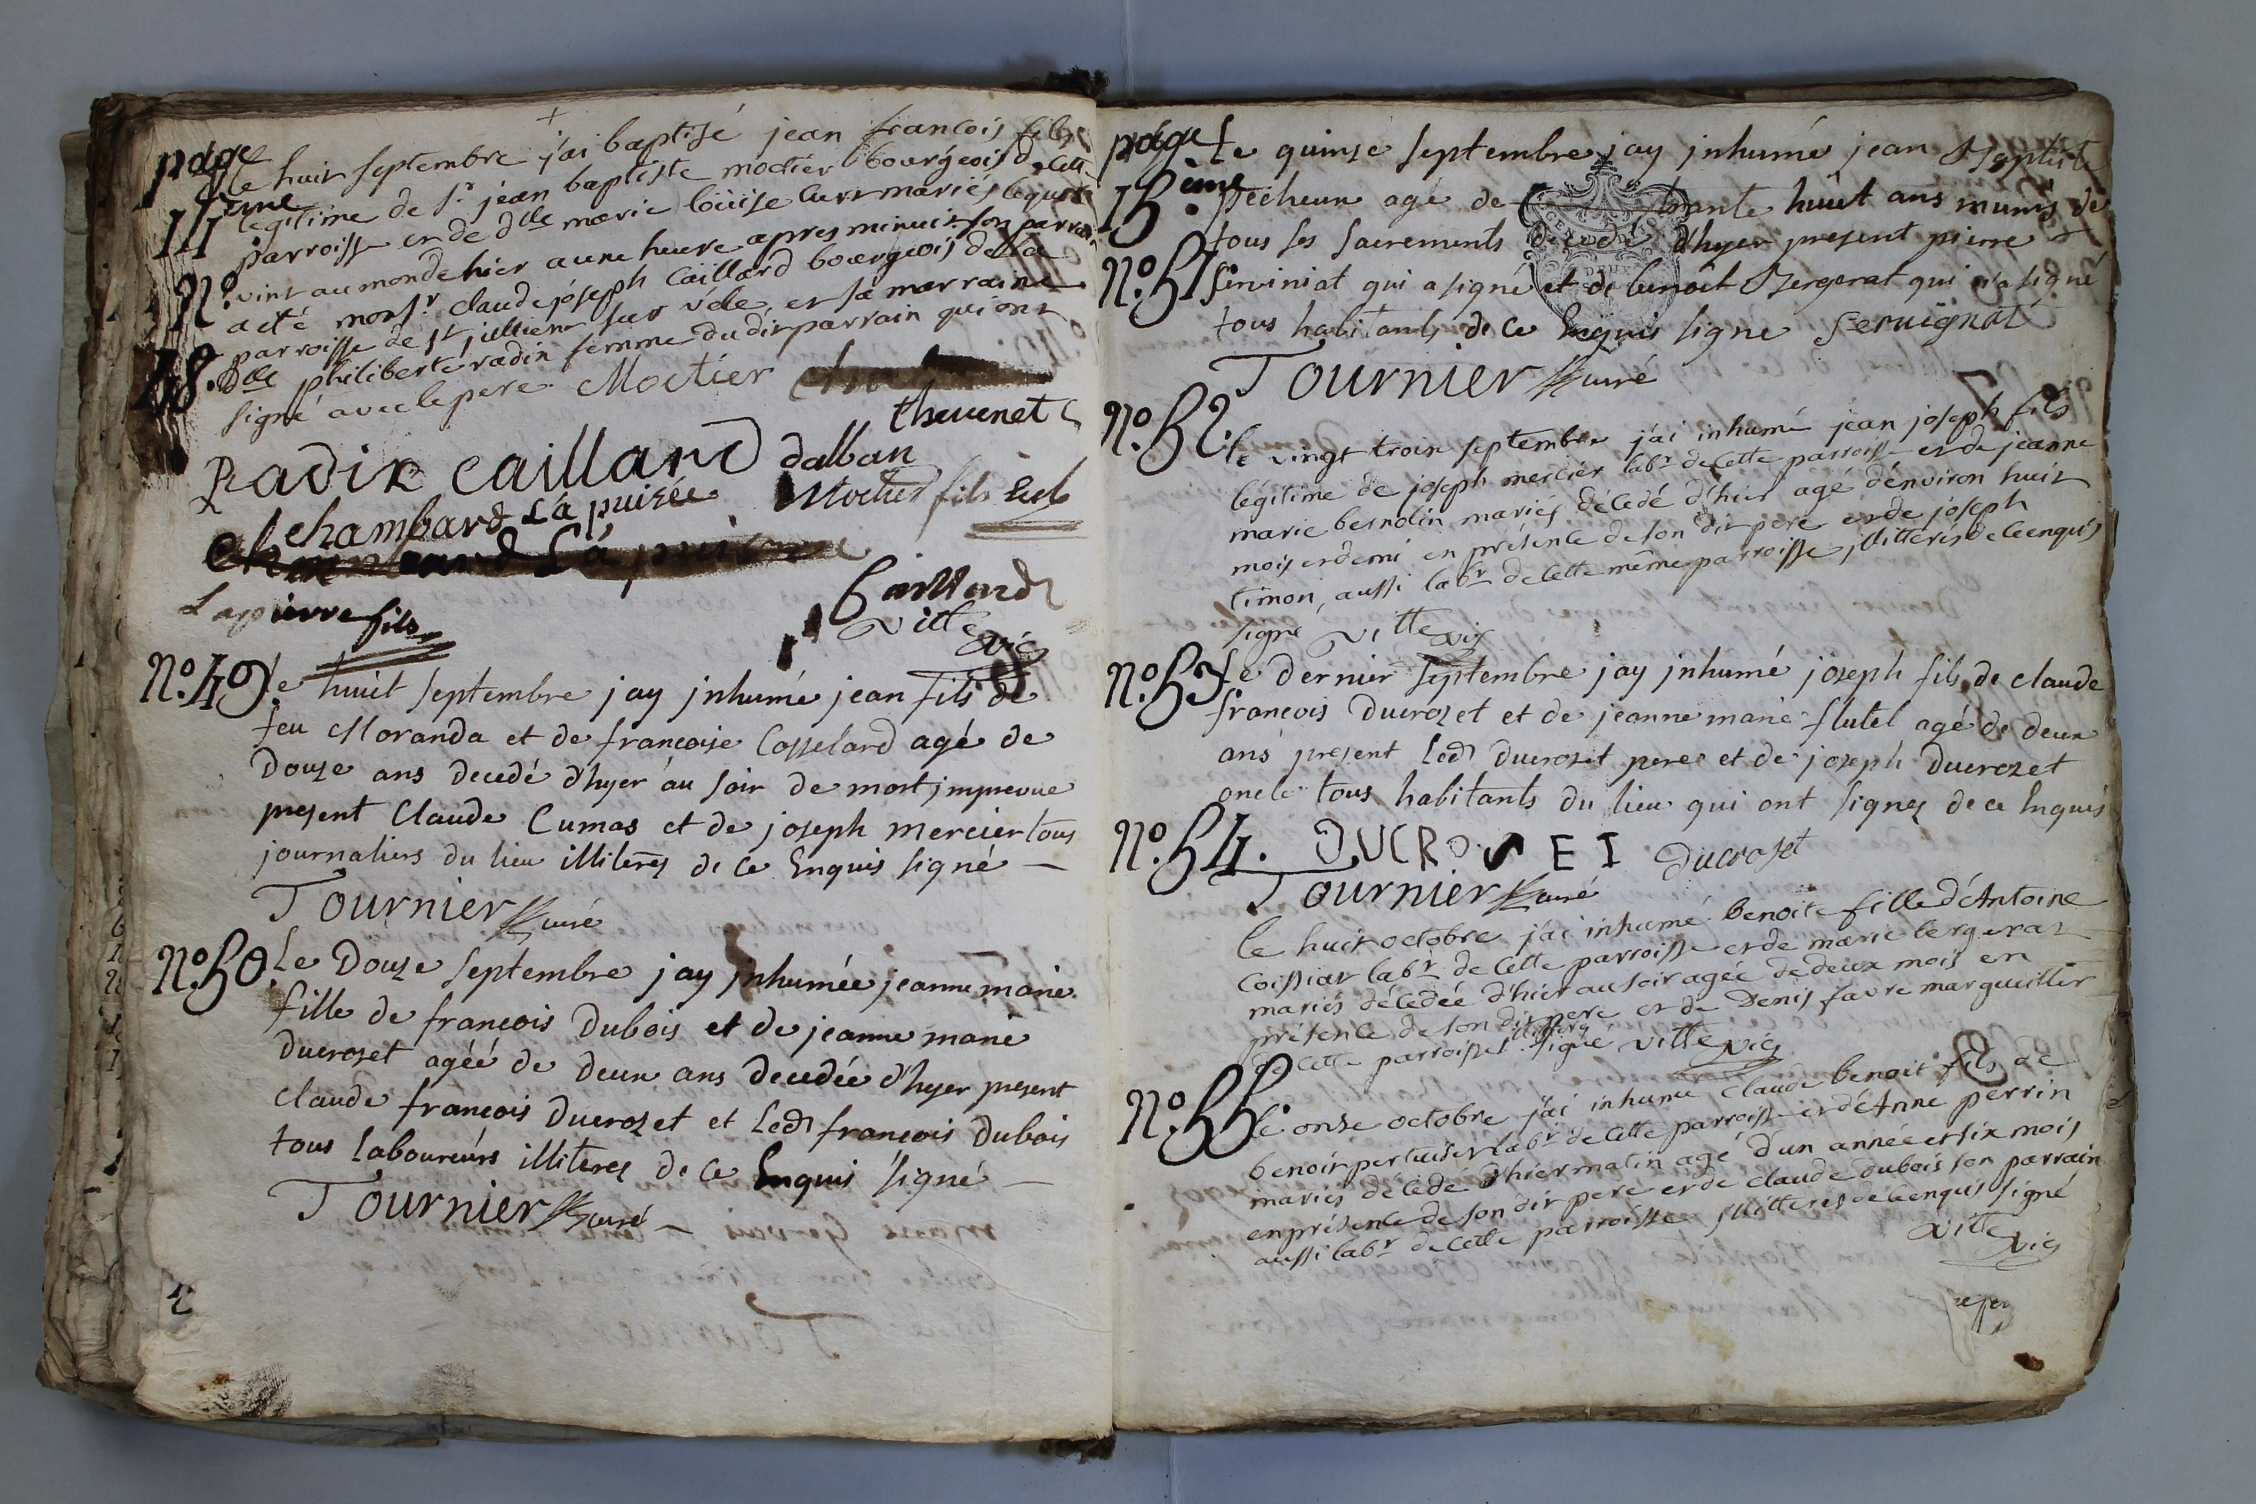 page 14eme
N.º 48.
le huit septembre j'ai baptisé jean francois fils
legitime de sr jean baptiste moctier bourgeois de cette
parroisse et de dlle marie loüise mariés lequel
vint au monde hier a une heure apres minuit son parrain
a eté monsr. claude joseph Caillard bourgeois de la
parroisse de st jullien sur vêle et sa marraine
Dlle philiberte radix femme du dit parrain qui ont
signé avec le pere Moctier
thevenet
Radix caillard dalban
chambard Lá puisée Moctier fils
Lapierre fils
Caillard
Ville vic
Nº. 49. le huit septembre jay jnhumé jean fils de
feu Moranda et de francoise Cosselard agé de
Douze ans decedé d'hyer au soir de mort jmprevue
present Claude Cumas et de joseph mercier tous
journaliers du lieu illiterés de ce Enquis signé
Tournier curé
Nº. 50. Le Douze septembre jay jnhumée jeanne marie
fille de francois Dubois et de jeanne marie
Ducrozet agéé de Deux ans decedée d'hyer present
claude francois Ducrozet et Led francois Dubois
tous Laboureurs illiterez de ce Enquis signé
Tournier curé
page 15.eme
Nº. 51 Le quinse septembre jay jnhumé jean Baptiste
pecheur agé de huit ans munis de
tous ses sacrements decedé d'hyer present pierre
Serviniat qui a signé et de benoît Bergerat qui n'a signé
tous habitants de ce Enquis signe Servignat
Tournier curé
Nº. 52. le vingt trois septembre j'ai inhumé jean joseph fils
légitime de joseph mercier labr de cette parroisse et de jeanne
marie bernolin mariés décedé d'hier agé d'environ huit
mois et demi en présence de son dit pere et de joseph
timon, aussi labr de cette même parroisse jllitterés de ce enquis
signé Ville vic
Nº. 53 Le Dernier septembre jay jnhumé joseph fils de claude
francois Ducrozet et de jeanne marie flutel agé de deux
ans present Led Ducrozet pere et de joseph Ducrozet
oncle tous habitants du lieu qui ont signez de ce Enquis
DUCROSET Ducroset
Tournier curé
Nº. 54. le huit octobre j'ai inhumé benoite fille d'Antoine
Coissiat labr de cette parroisse et de marie bergerat
mariés décedée d'hier au soir agée de deux mois en
présence de son dit pere et de Denis favre marguillier
de cette parroisse illitterés signé Ville vic
Nº. 55 le onse octobre j'ai inhumé claude benoit fils de
benoit pertuiset labr de cette parroisse et d'Anne perrin
mariés décedé d'hier matin agé d'un année et six mois
en présence de son dit pere et de claude dubois son parrain
aussi labr de cette parroisse jllitterés de ce enquis signé
Ville vic